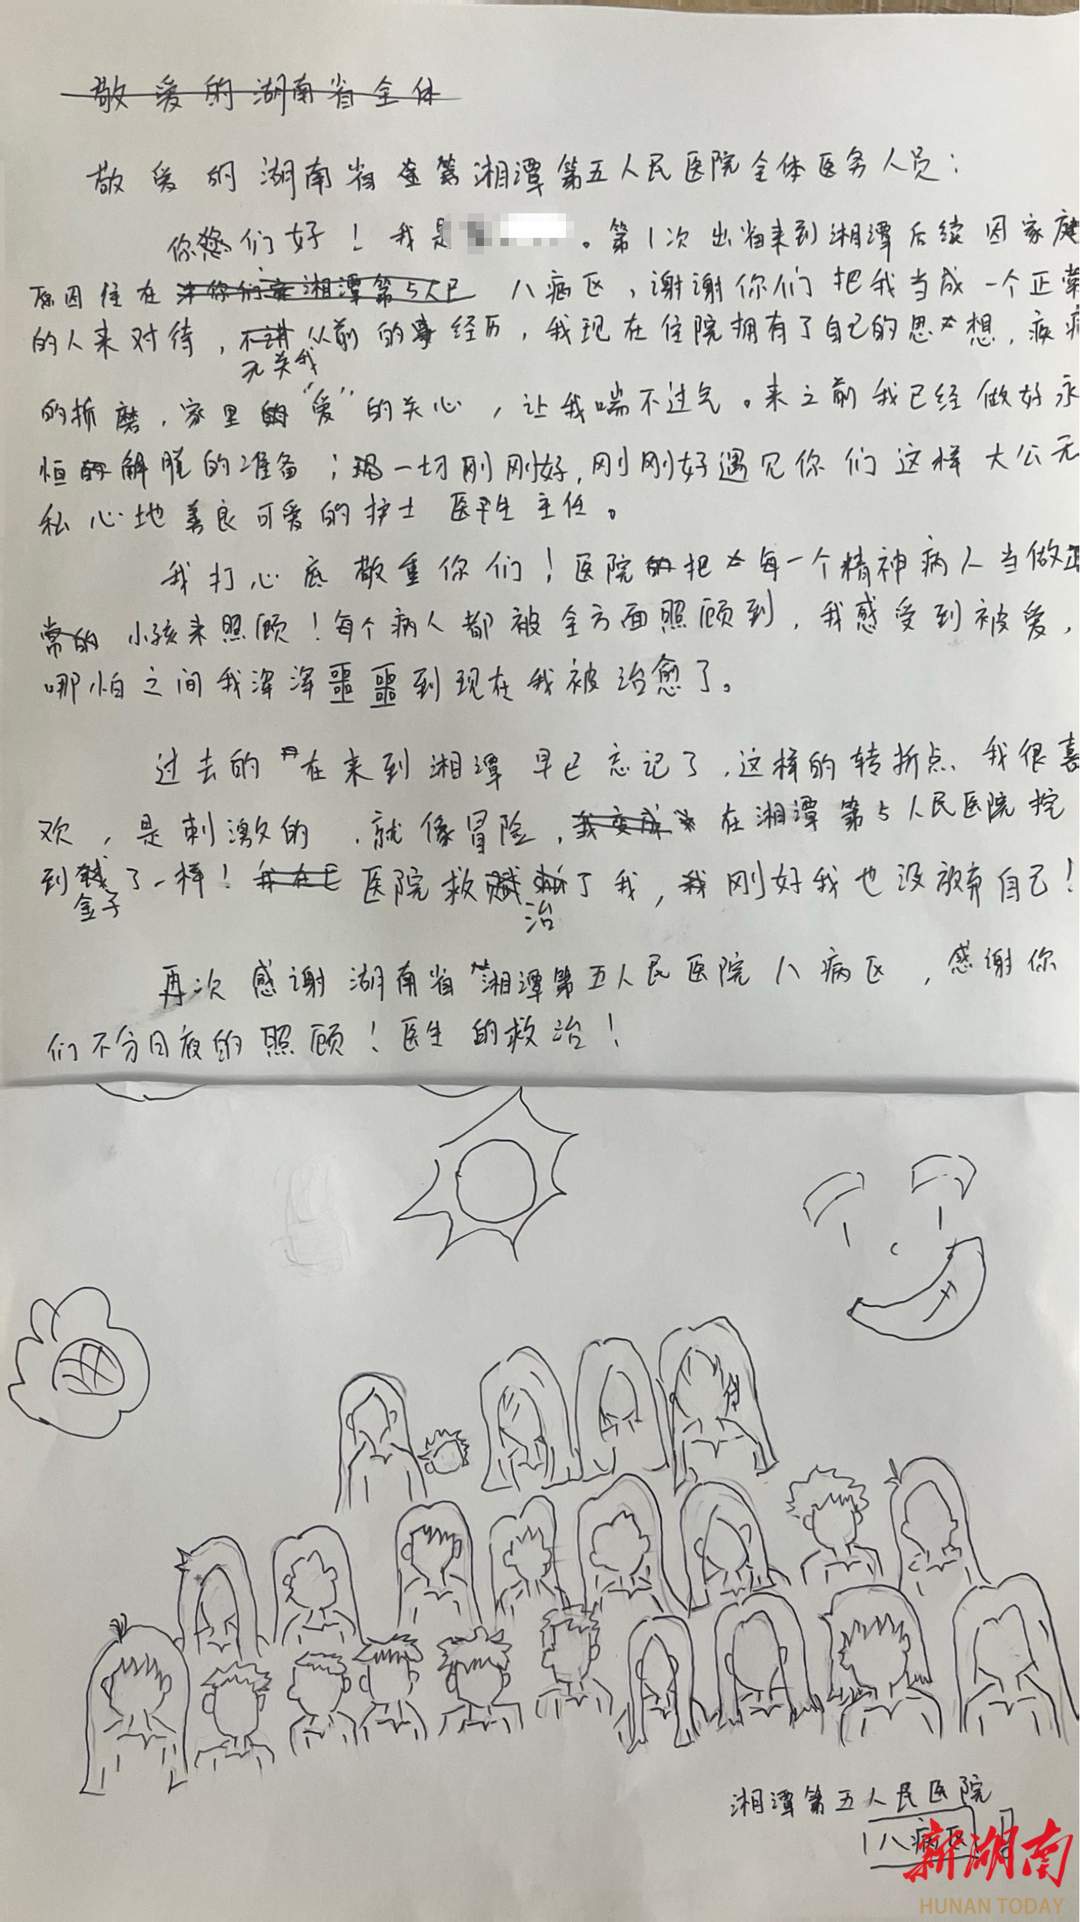 敬爱的湖南省全体
敬爱的湖南省湘潭第五人民医院全体医务人员：
你您们好！我是 。第1次出省来到湘潭后续因家庭
原因住在 你们 湘潭第5人民 八病区，谢谢你们把我当成一个正常
的人来对待，不讲从前的事经历，我现在住院拥有了自己的思想，疾病
无关我
的折磨，家里的“爱”的关心，让我喘不过气。来之前我已经做好永
恒的解脱的准备；一切刚刚好，刚刚好遇见你们这样大公无
私心地善良可爱的护士医生主任。
我打心底敬重你们！医院的把每一个精神病人当做正
常的小孩来照顾！每个病人都被全方面照顾到，我感受到被爱，
哪怕之间我浑浑噩噩到现在我被治愈了。
过去的在来到湘潭早已忘记了，这样的转折点我很喜
欢，是刺激的，就像冒险，我变成 在湘潭第5人民医院挖
到钱了一样！我在 医院救 了我，我刚好我也没放弃自己！
金子
治
再次感谢湖南省湘潭第五人民医院八病区，感谢你
们不分日夜的照顾！医生的救治！
湘潭第五人民医院
八病区
新湖南
HUNAN TODAY